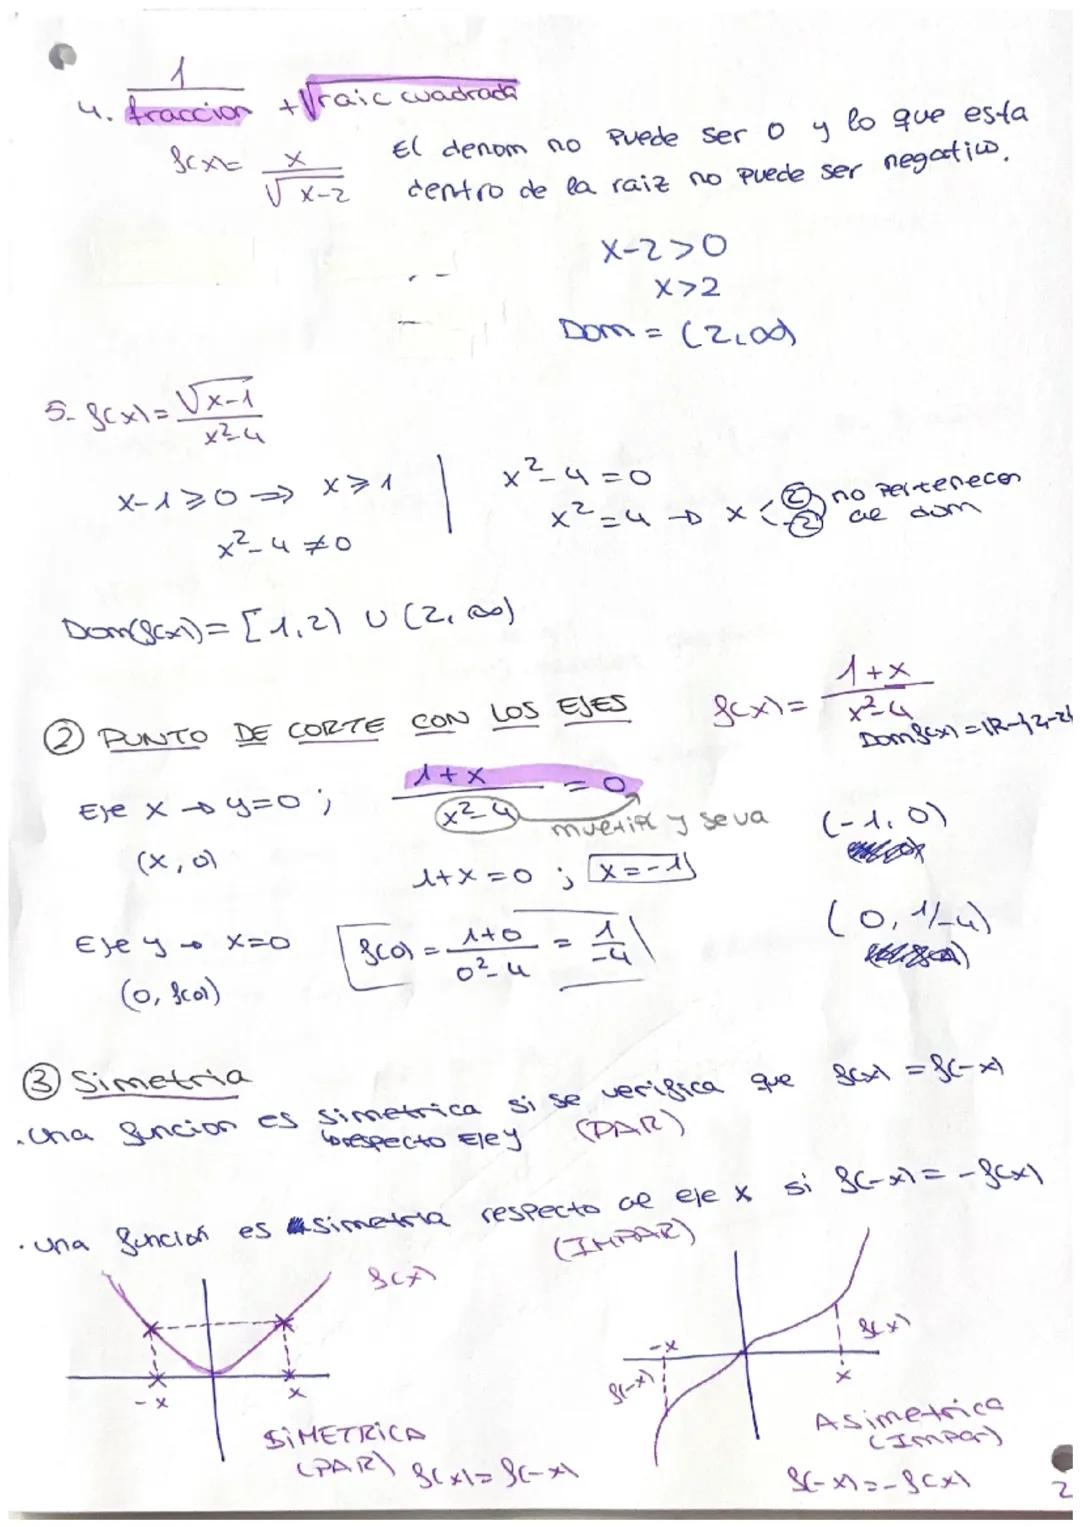 4. 1/fraccion + √raic cuadrada
f(x)= x/√x-2
El denom no puede ser 0 y lo que esta
dentro de la raiz no puede ser negativo.
x-2>0
x>2
Dom = (2,∞)
5- f(x)= √x-1/x²-4
x-1⩾0 => x⩾1
x²-4≠0
x²-4=0
x²=4 → x < 2 -2 no pertenecen
al dom
Dom(f(x))= [1,2) U (2,∞)
② PUNTO DE CORTE CON LOS EJES
f(x)= 1+x/x²-4
Domf(x)=IR-{2,-2}
Eje x → y=0 ; 1+x/x²-4 = 0
(x, 0)
muere y se va
1+x=0 ; x=-1
(-1, 0)
Eje y → x=0
(0, f(0))
f(0) = 1+0/0²-4 = 1/-4
(0, 1/-4)
③ Simetria
. Una funcion es simetrica si se verifica que f(x) = f(-x)
respecto Eje y (PAR)
. una función es simetria respecto al eje x si f(-x)= -f(x)
(IMPAR)
f(x)
-x
x
SIMETRICA
(PAR) f(x)=f(-x)
-x
f(-x)
f(x)
x
Asimetrica
(Impar)
f(-x)=-f(x)
2